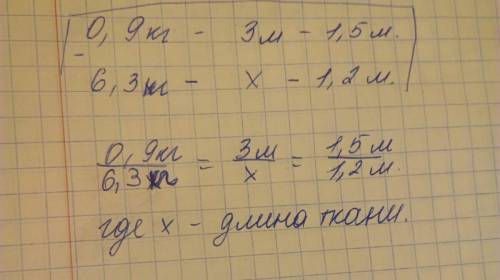 0,9кг - 3м - 1,5м.
-
6,3кг - x - 1,2м.
0,9кг/6,3кг = 3м/x = 1,5м/1,2м.
где x - длина ткани.